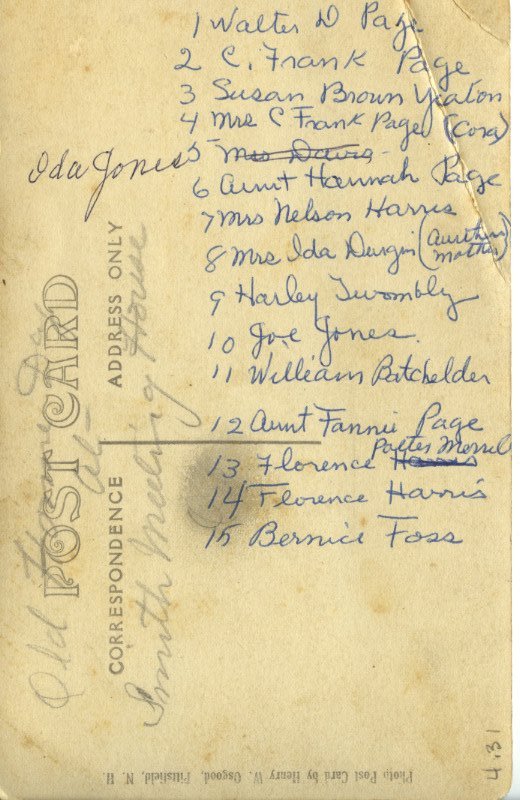 1 Walter D Page
2 C. Frank Page
3 Susan Brown Yeaton
4 Mrs C Frank Page (Cora)
5 Mrs Davis
Ida Jones
6 Aunt Hannah Page
7 Mrs Nelson Harris
8 Mrs Ida Durgin (mother)
9 Harley Twombly
10 Joe Jones.
11 William Batchelder
12 Aunt Fannie Page
13 Florence Harris Morrel
14 Florence Harris
15 Bernice Foss
Old Home Day
at
Smith Meeting House
POST CARD
CORRESPONDENCE ADDRESS ONLY
Photo Post Card by Henry W. Osgood, Pittsfield, N. H.
4.31